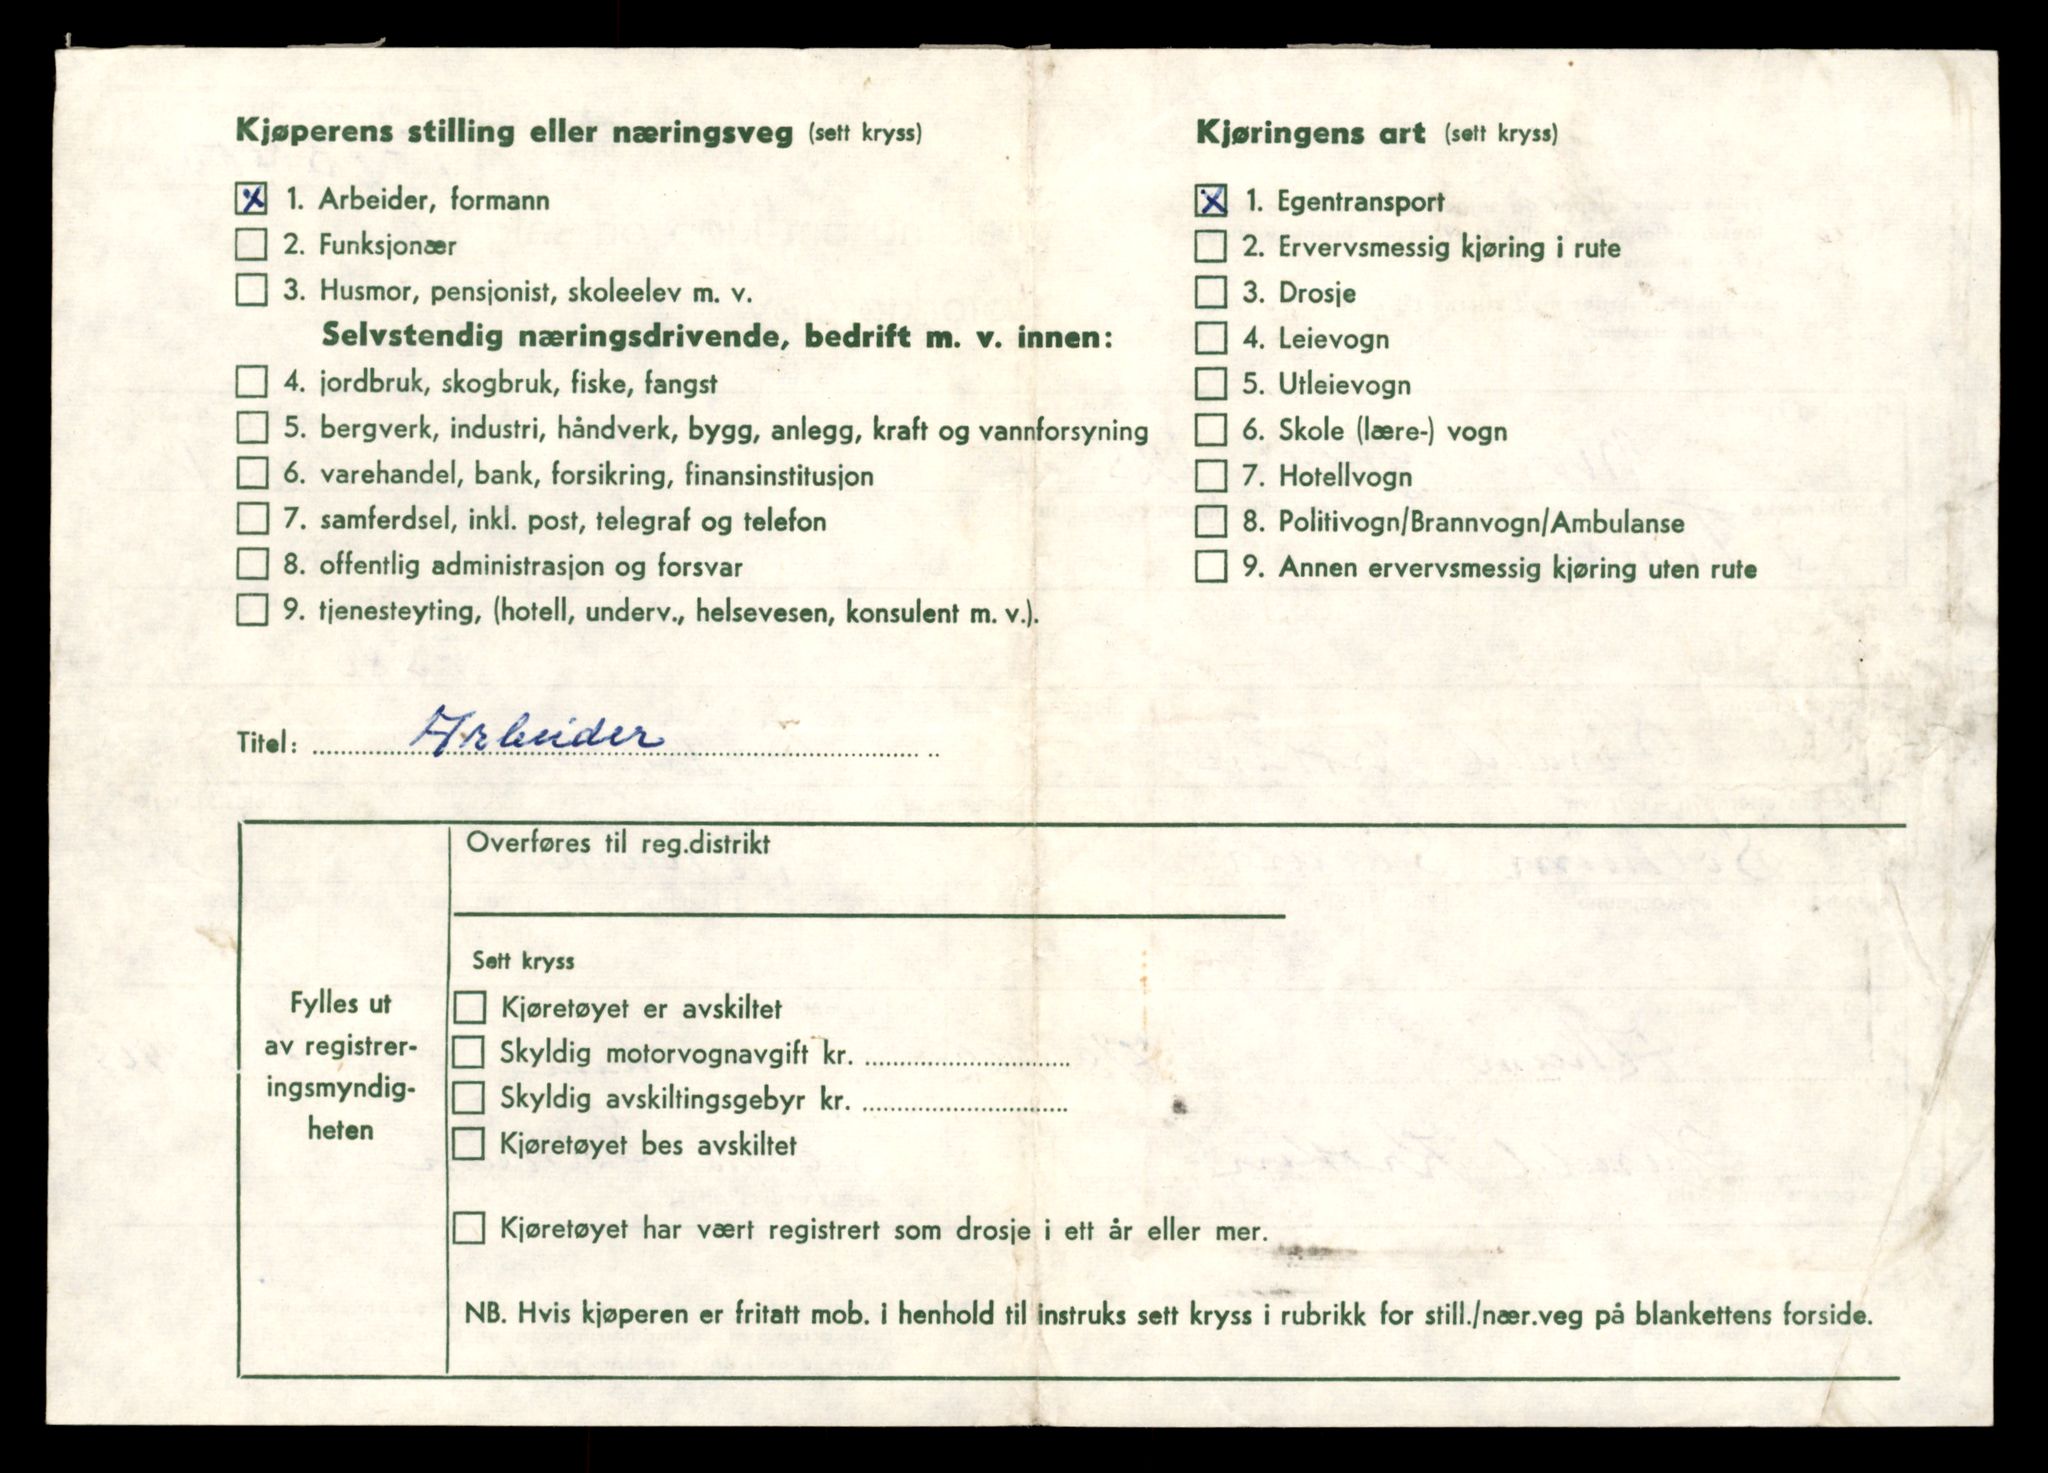 Kjøperens stilling eller næringsveg (sett kryss)
1. Arbeider, formann
2. Funksjonær
3. Husmor, pensjonist, skoleelev m. v.
Selvstendig næringsdrivende, bedrift m. v. innen:
4. jordbruk, skogbruk, fiske, fangst
5. bergverk, industri, håndverk, bygg, anlegg, kraft og vannforsyning
6. varehandel, bank, forsikring, finansinstitusjon
7. samferdsel, inkl. post, telegraf og telefon
8. offentlig administrasjon og forsvar
9. tjenesteyting, (hotell, underv., helsevesen, konsulent m. v.).
Kjøringens art (sett kryss)
1. Egentransport
2. Ervervsmessig kjøring i rute
3. Drosje
4. Leievogn
5. Utleievogn
6. Skole (lære-) vogn
7. Hotellvogn
8. Politivogn/Brannvogn/Ambulanse
9. Annen ervervsmessig kjøring uten rute
Titel: Arbeider
Fylles ut
av registrer-
ingsmyndig-
heten
Overføres til reg.distrikt
Sett kryss
Kjøretøyet er avskiltet
Skyldig motorvognavgift kr.
Skyldig avskiltingsgebyr kr.
Kjøretøyet bes avskiltet
Kjøretøyet har vært registrert som drosje i ett år eller mer.
NB. Hvis kjøperen er fritatt mob. i henhold til instruks sett kryss i rubrikk for still./nær.veg på blankettens forside.